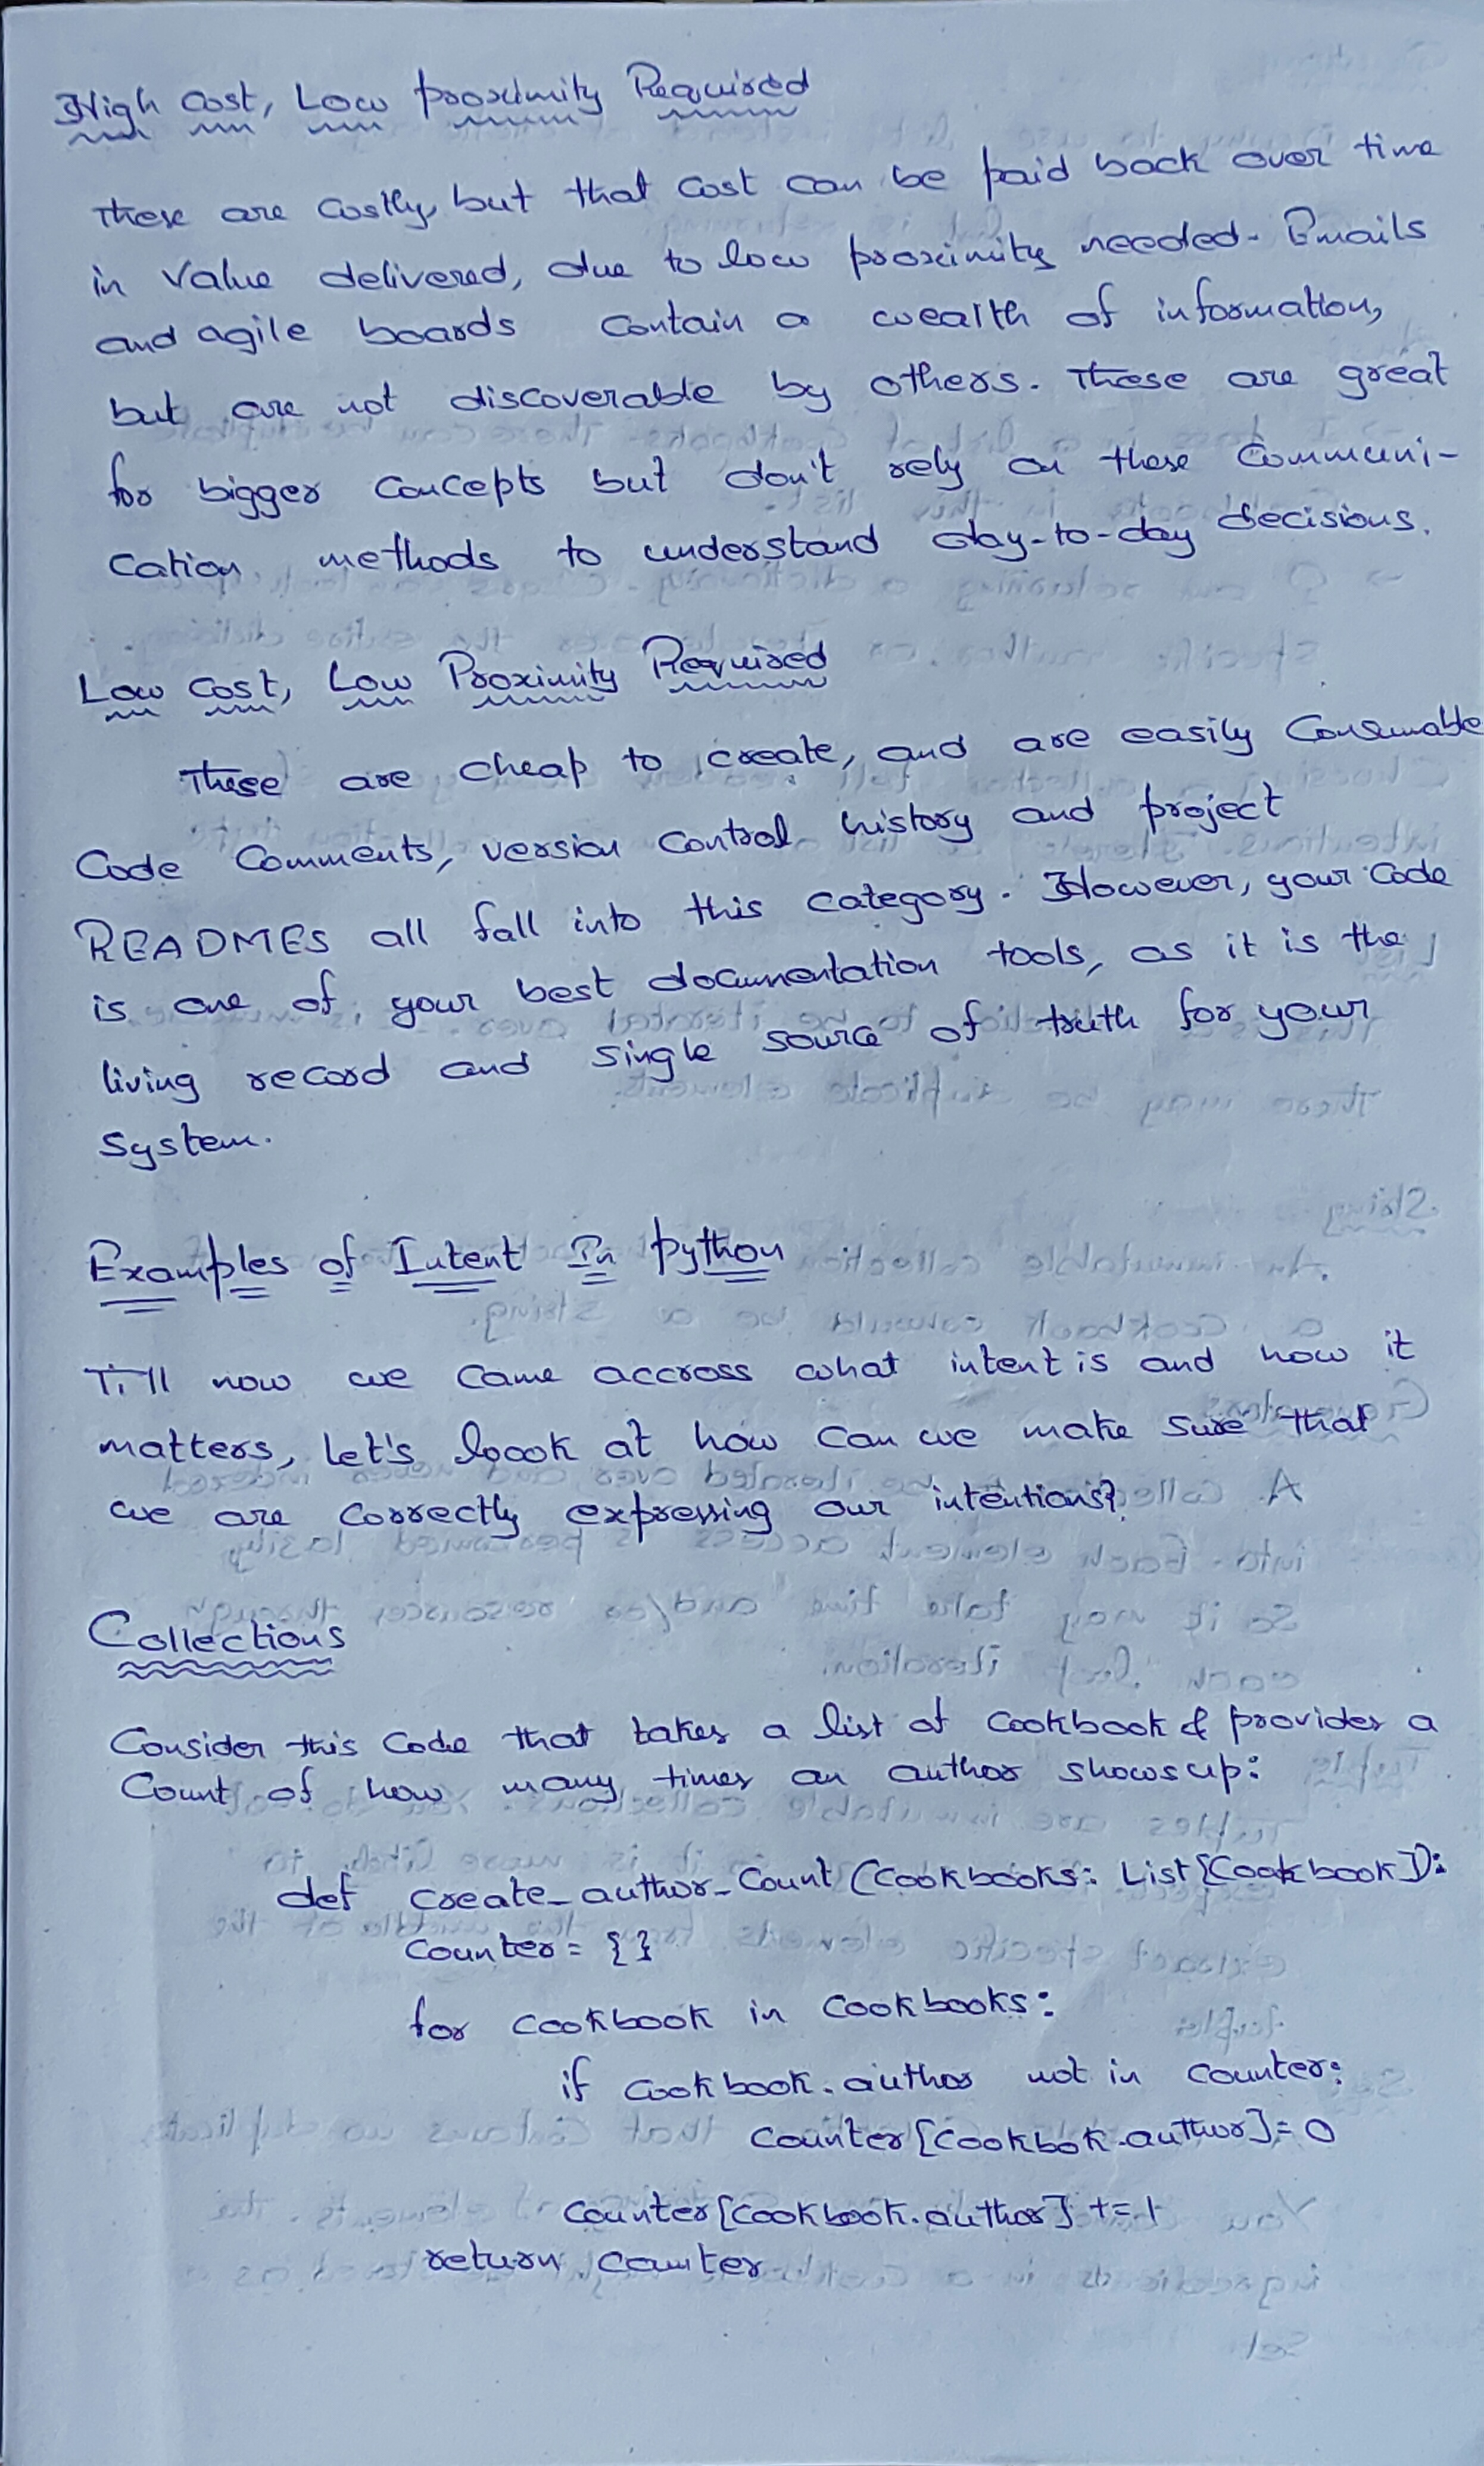 High Cost, Low proximity Required
These are Costly, but that Cost can be paid back over time
in Value delivered, due to low proximity needed. Emails
and agile boards Contain a wealth of information,
but are not discoverable by others. These are great
for bigger Concepts but don't rely on these Communi-
Cation methods to understand day-to-day decisions.
Low Cost, Low Proximity Required
These are cheap to create, and are easily Consumable
Code Comments, version Control history and project
READMES all fall into this category. However, your Code
is one of your best documentation tools, as it is the
living record and single source of truth for your
System.
Examples of Intent In python
Till now we Came accross what intent is and how it
matters, Let's loook at how Can we make Sure that
we are Correctly expressing our intentions?
Collections
Consider this Code that takes a list of Cookbook & provides a
Count of how many times an author shows up:
def create_author_Count (Cookbooks: List[Cookbook]):
Counter = {}
for cookbook in Cookbooks:
if Cookbook.author not in Counter:
Counter[Cookbok.author] = 0
Counter[Cookbook.author] += 1
return Counter